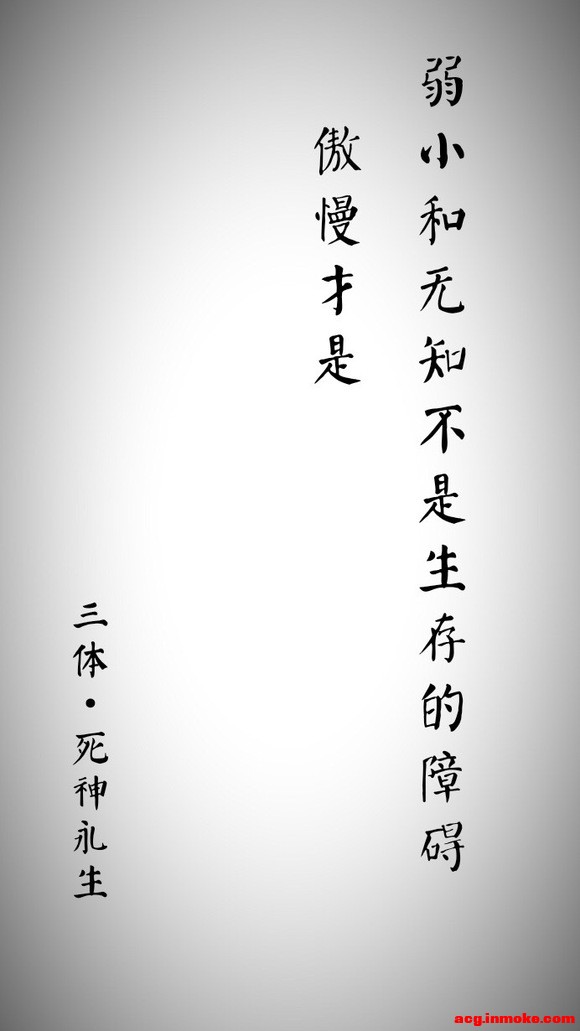 弱小和无知不是生存的障碍
傲慢才是
三体·死神永生
acg.inmoke.com